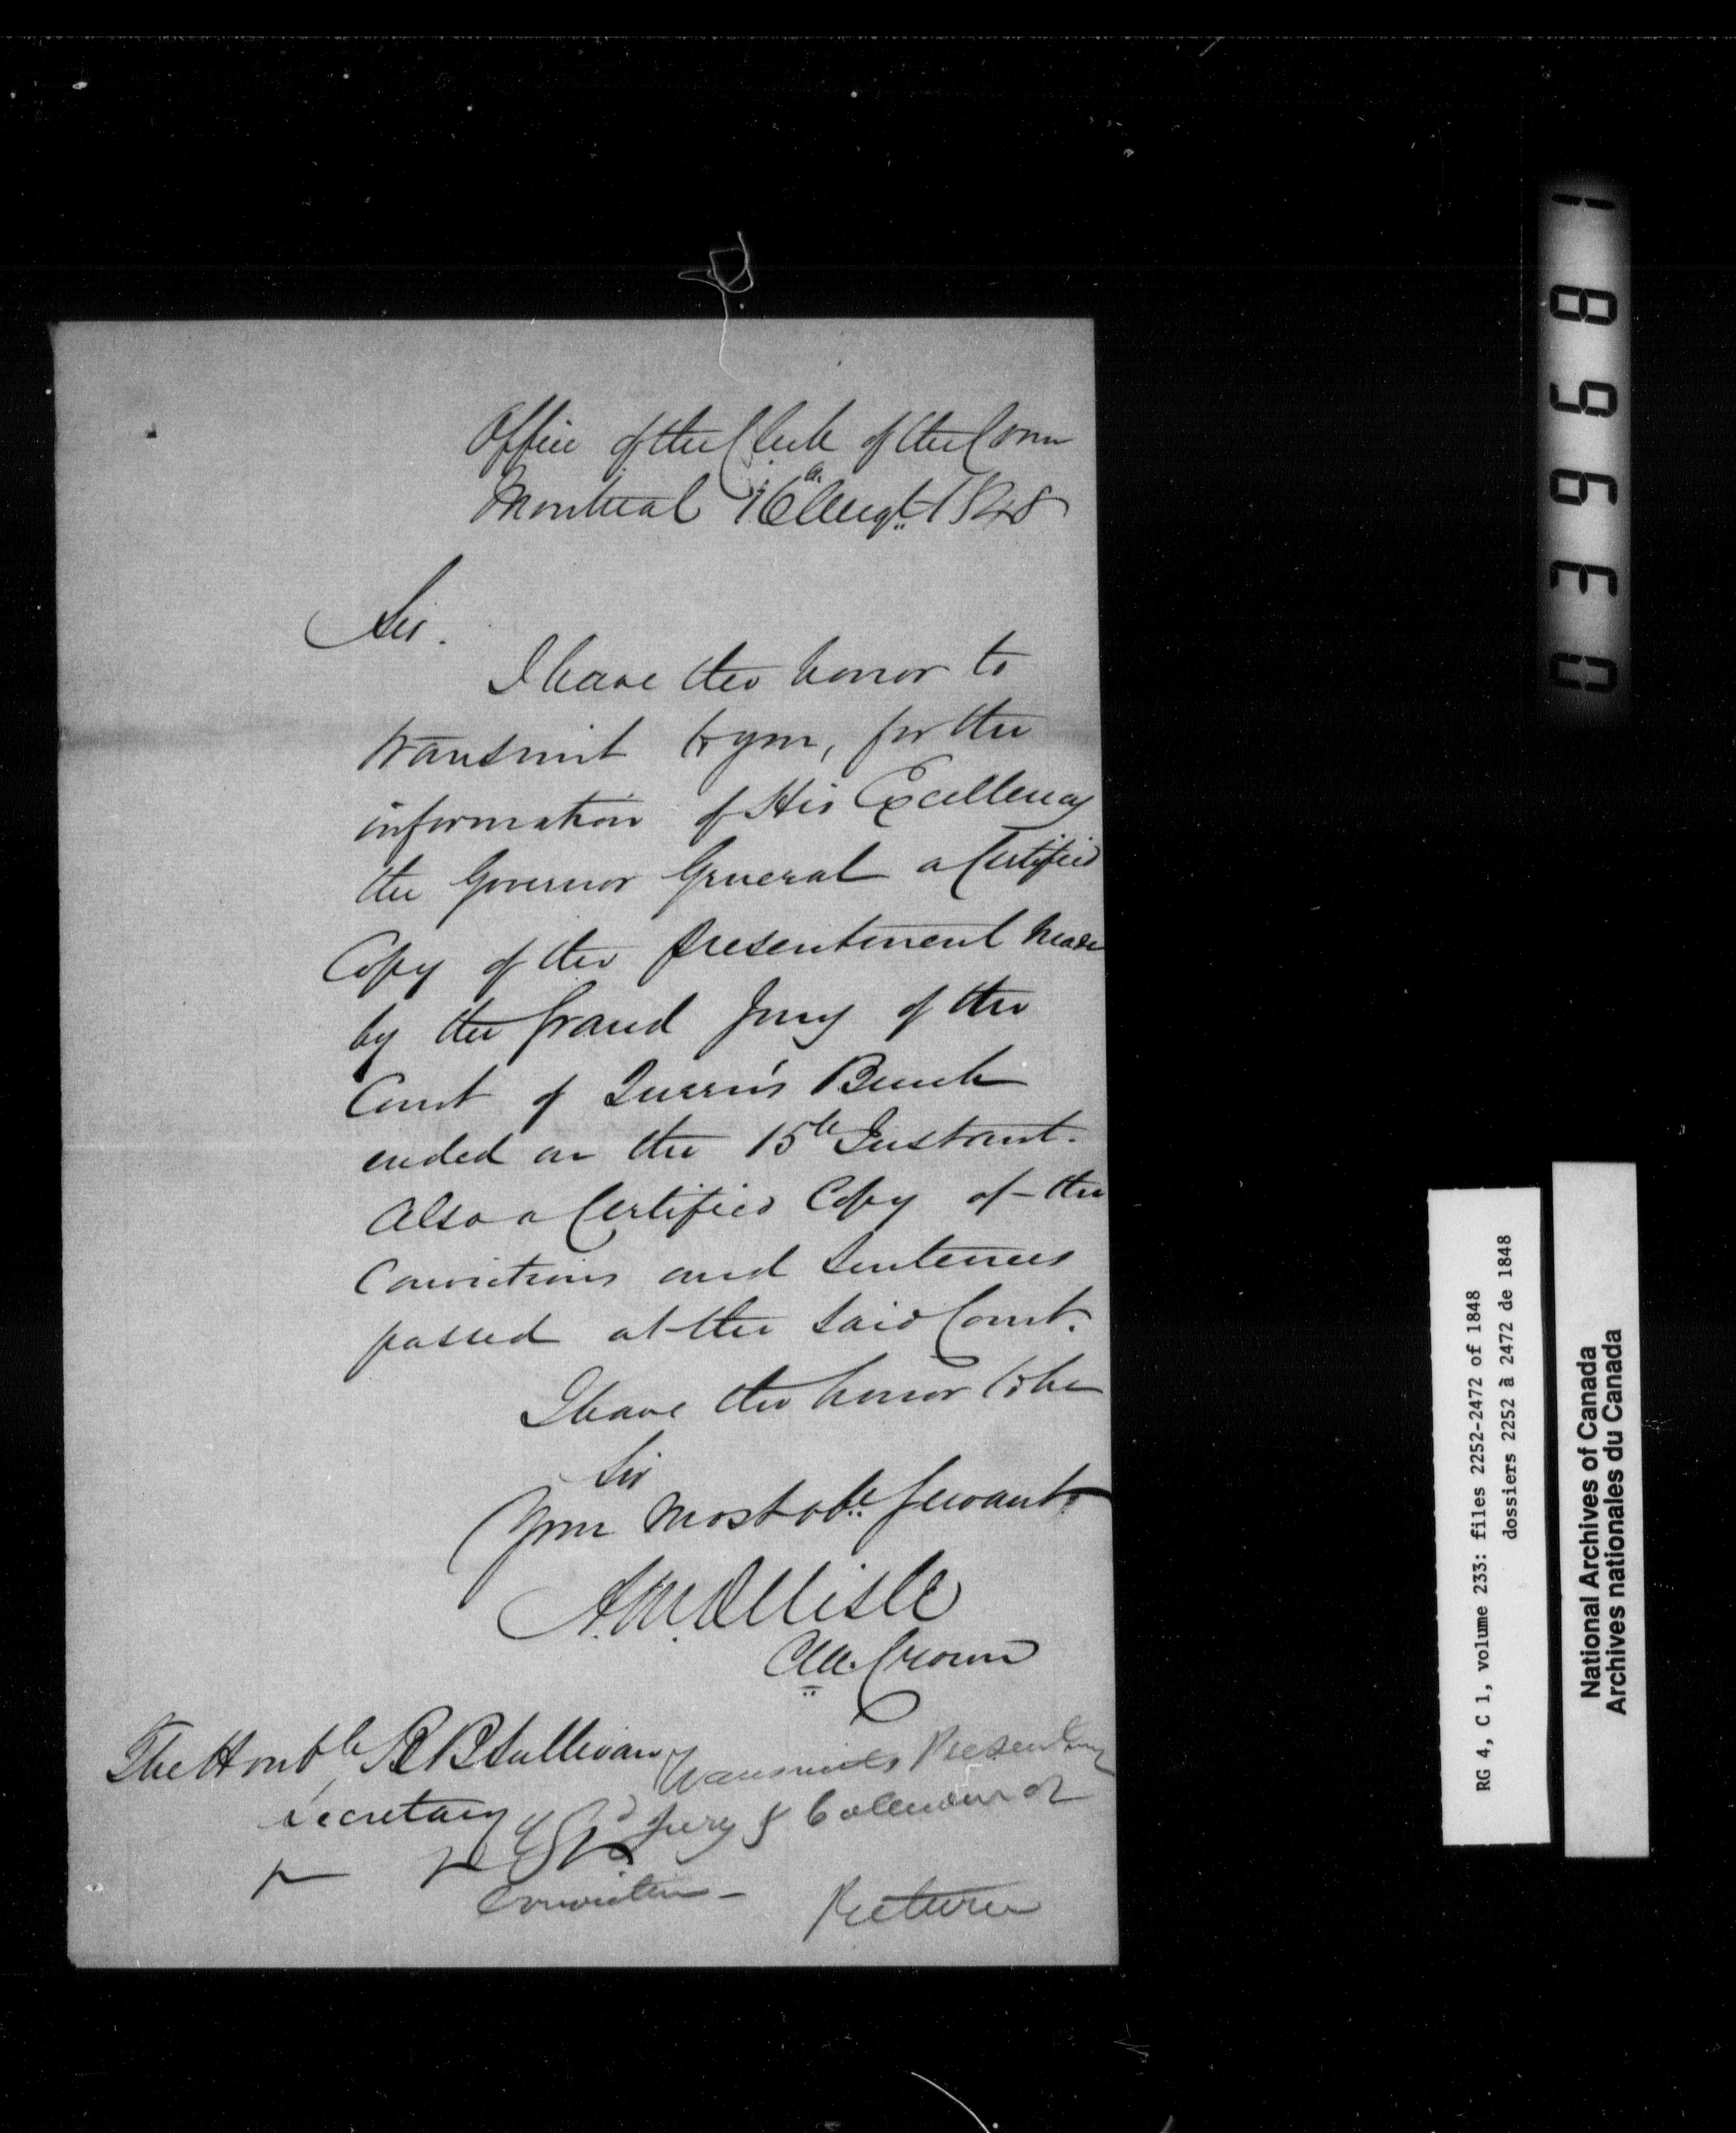 Office of the Clerk of the Crown
Montreal 16th Augt. 1848
Sir.
I have the honor to
transmit to you, for the
information of His Excellency
the Governor General a Certified
Copy of the presentment made
by the Grand Jury of the
Court of Queen's Bench
ended on the 15th Instant.
Also a Certified Copy of the
Convictions and Sentences
passed at the said Court.
I have the honor to be
Sir
Your most obt. Servant
A. M. Delisle
Clk. Crown
The Honble R B Sullivan
Secretary
Transmits Presentmt
of Gd Jury & Calendar of
Conviction -
Return
039681
RG 4, C 1, volume 233: files 2252-2472 of 1848
dossiers 2252 à 2472 de 1848
National Archives of Canada
Archives nationales du Canada